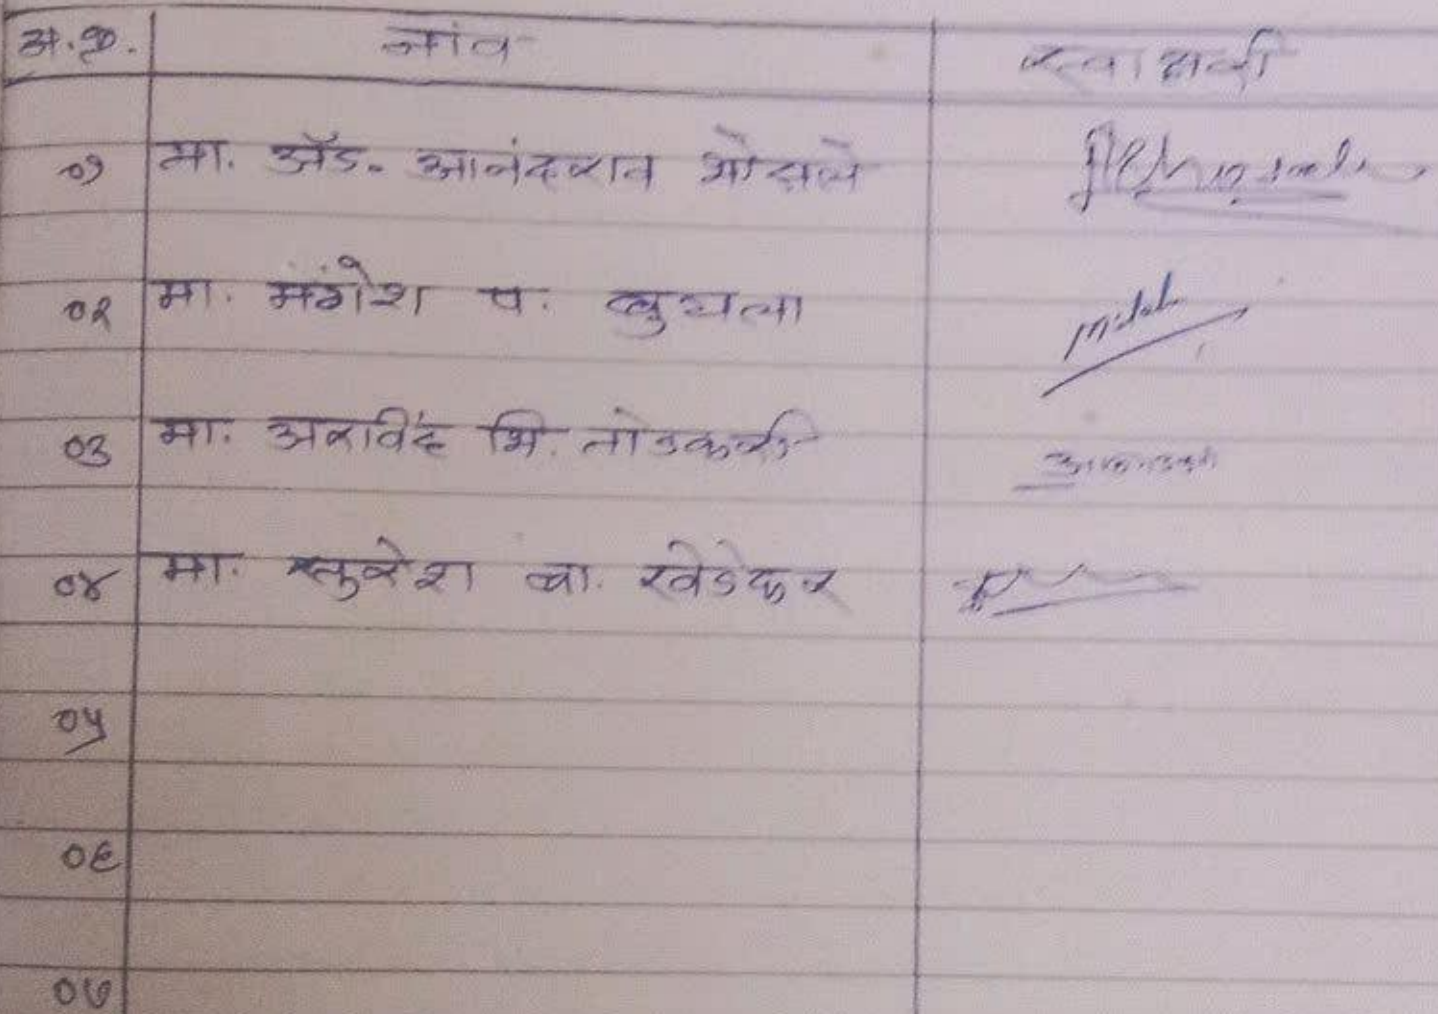 अ.क्र. नांव स्वाक्षरी
०१ मा. अॅड. आनंदराव भोसले
०२ मा. मंगेश प. बुचला
०३ मा. अरविंद भि. तोडकरी
०४ मा. सुरेश बा. खेडेकर
०५
०६
०७